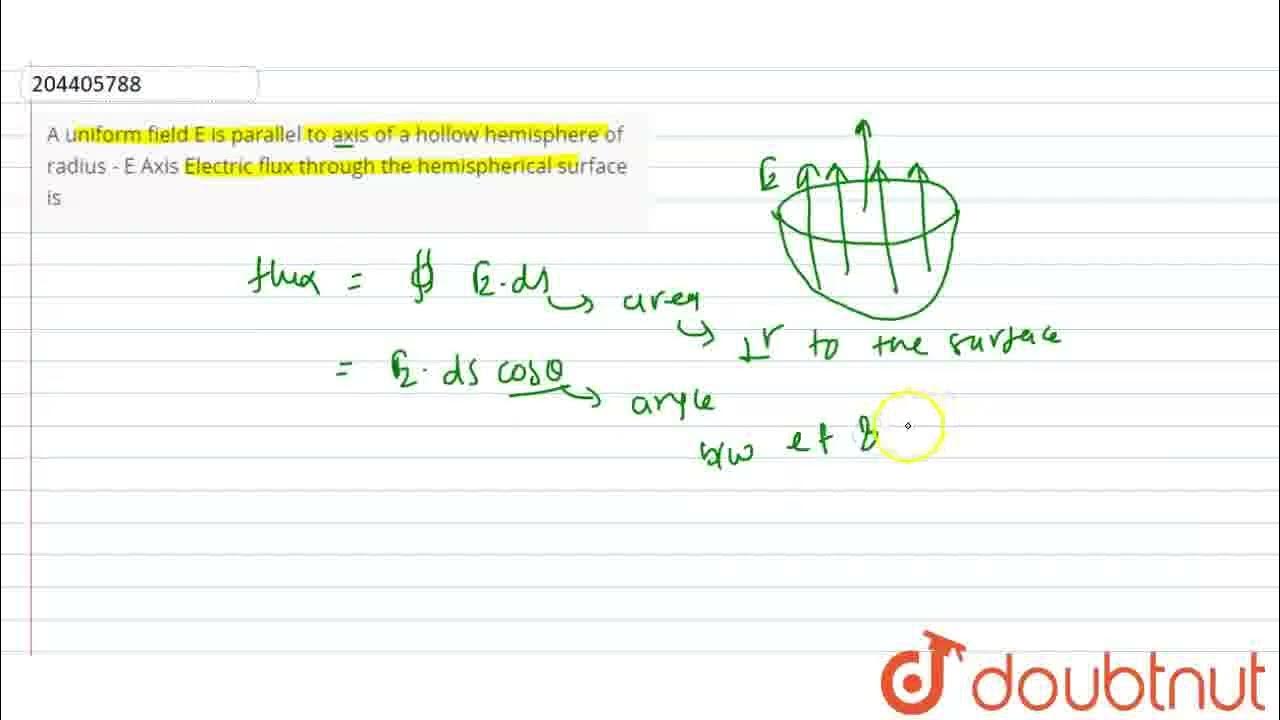 204405788
A uniform field E is parallel to axis of a hollow hemisphere of
radius - E Axis Electric flux through the hemispherical surface
is
E
flux = ∯ E.ds → area
→ ⊥r to the surface
= E. ds cosθ → angle
b/w
doubtnut